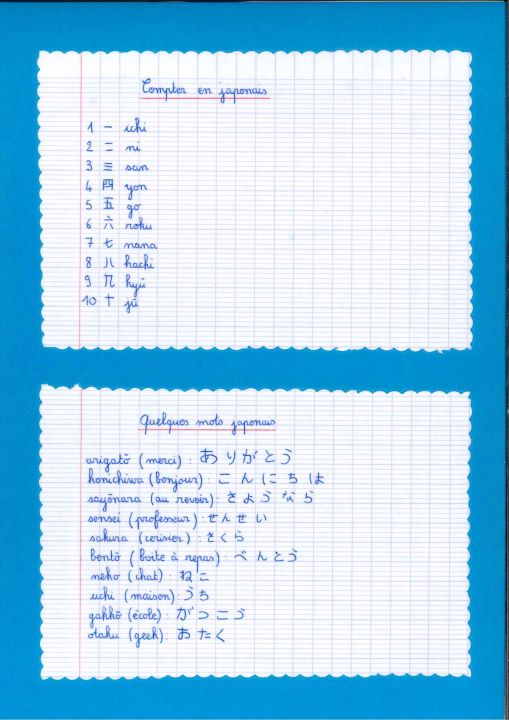 Compter en japonais
1 一 ichi
2 二 ni
3 三 san
4 四 yon
5 五 go
6 六 roku
7 七 nana
8 八 hachi
9 九 kyū
10 十 jū
Quelques mots japonais
arigatō (merci) : ありがとう
konichiwa (bonjour) : こんにちは
sayōnara (au revoir) : さようなら
sensei (professeur) : せんせい
sakura (cerisier) : さくら
bentō (boîte à repas) : べんとう
neko (chat) : ねこ
uchi (maison) : うち
gakkō (école) : がつこう
otaku (geek) : おたく